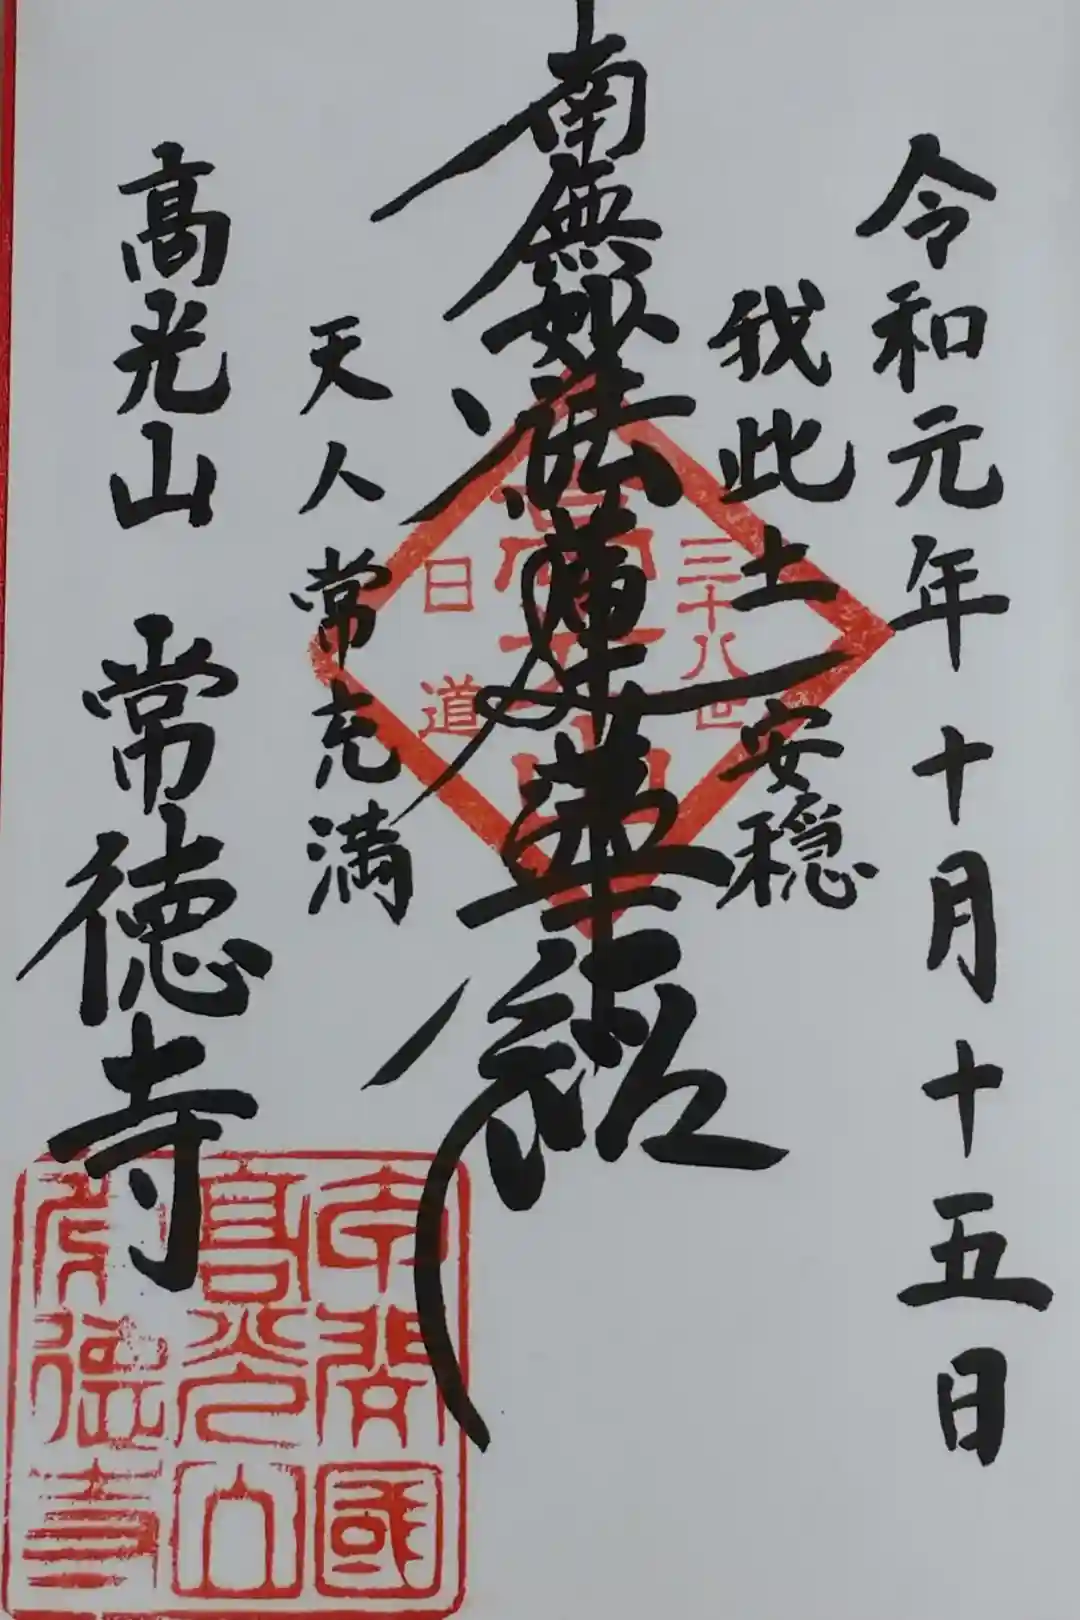 令和元年十月十五日
我此土安穏
南無妙法蓮華経
天人常充満
髙光山 常徳寺
三十八世
日道
高光山
常徳寺